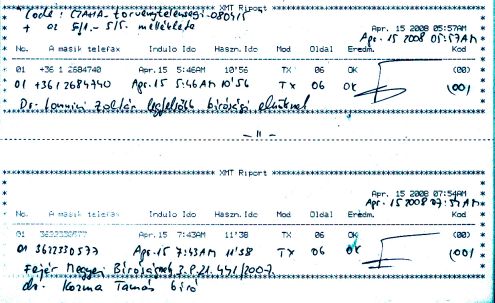 XMT Riport
+ az 5/1.- 5/5. melléklete
Apr. 15 2008 05:57AM
Apr. 15 2008 05:57AM
No. A másik telefax Induló Idő Haszn. Idő Mód Oldal Eredm. Kód
01 +36 1 2684740 Apr.15 5:46AM 10'56 TX 06 OK (00)
01 +36 1 2684740 Apr.15 5:46AM 10'56 TX 06 OK (00)
Dr. Zoltán legfelsőbb bírósági elnöknek
- 11 -
XMT Riport
Apr. 15 2008 07:54AM
Apr. 15 2008 07:54AM
No. A másik telefax Induló Idő Haszn. Idő Mód Oldal Eredm. Kód
01 3622330577 Apr.15 7:43AM 11'38 TX 06 OK (00)
01 3622330577 Apr.15 7:43AM 11'38 TX 06 OK (00)
Fejér Megyei Bíróságnak 3.P.21.441/2007.
dr. Kozma Tamás bíró